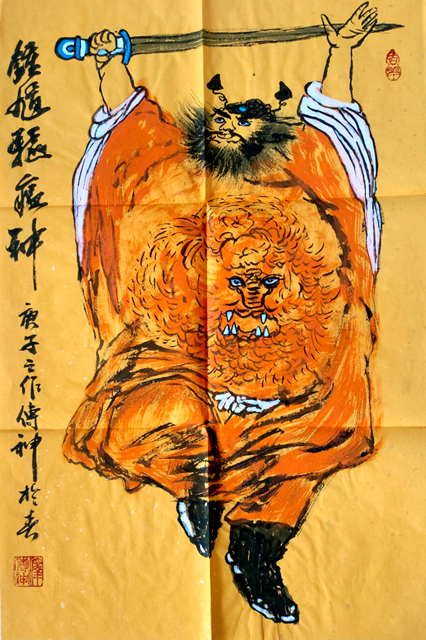 鍾馗驅瘟神
庚子之作傳神於春